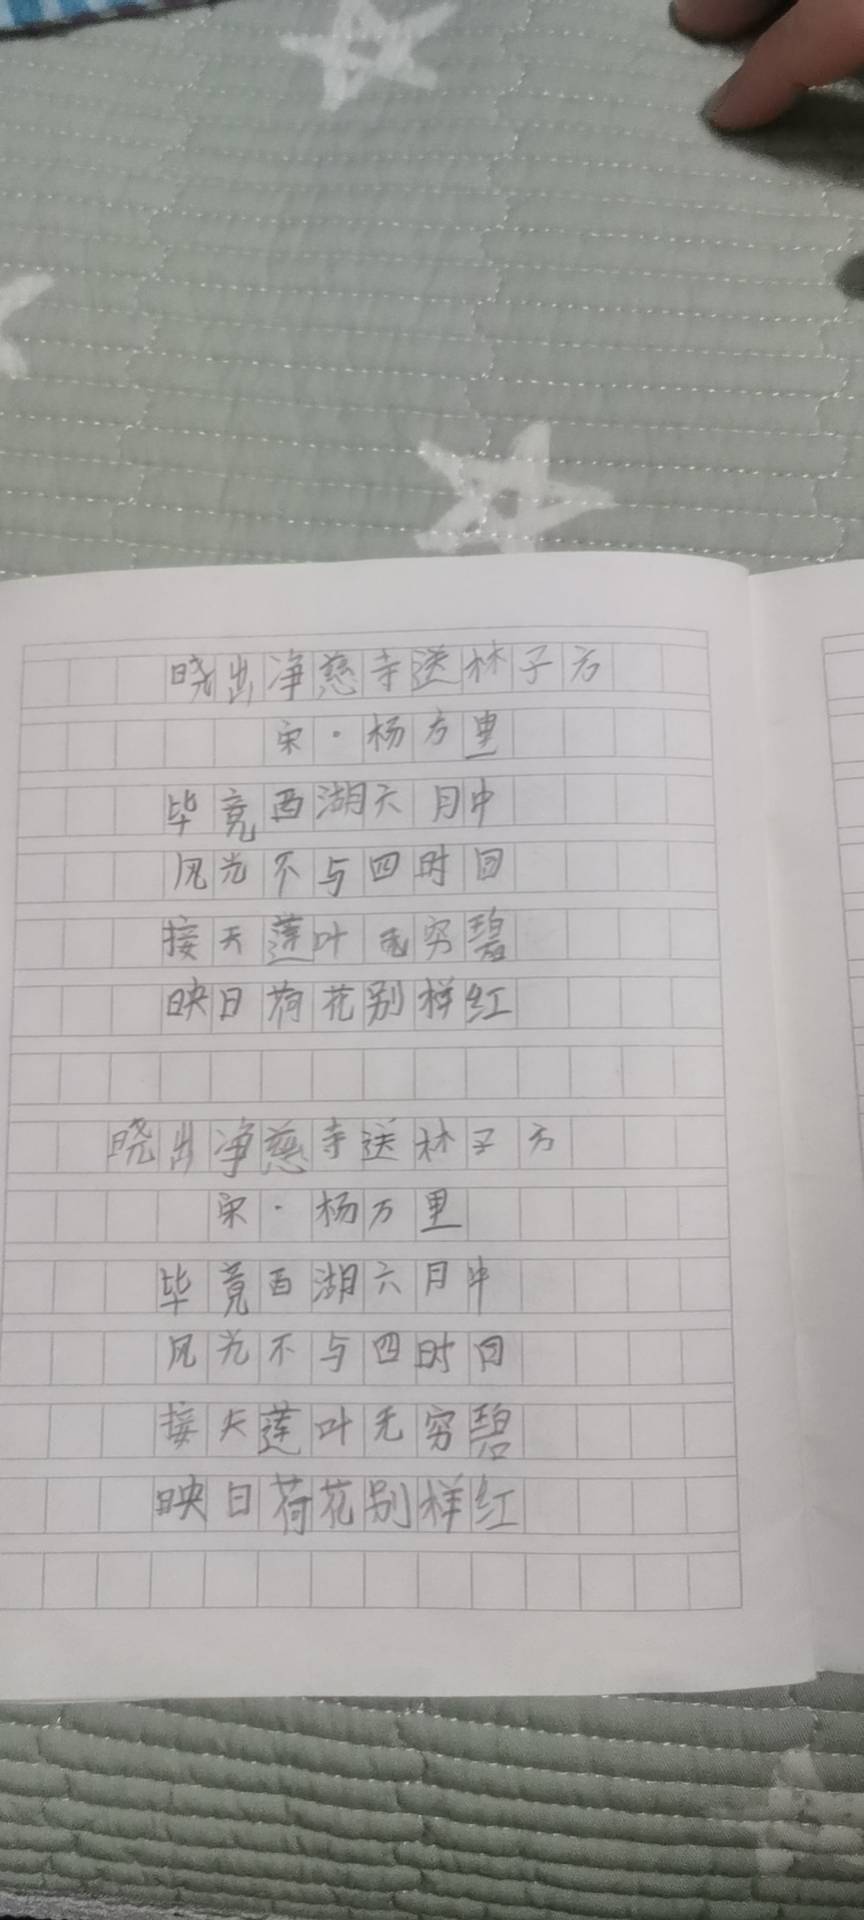 晓出净慈寺送林子方
宋·杨方里
毕竟西湖六月中
风光不与四时同
接天莲叶无穷碧
映日荷花别样红
晓出净慈寺送林子方
宋·杨万里
毕竟西湖六月中
风光不与四时同
接天莲叶无穷碧
映日荷花别样红